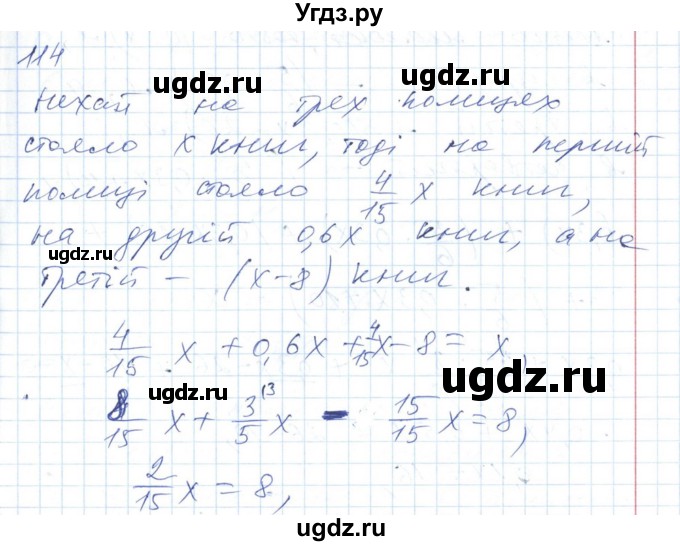 Угдз.ру
114
ugdz.ru ugdz.ru
Нехай на трёх полицях
стояло х книг, тоді на першій
полиці стояло 4/15 х книг,
на другій 0,6х книг, а на
третій – (х-8) книг.
ugdz.ru ugdz.ru
4/15 х + 0,6х + 4/15 х - 8 = х,
ugdz.ru ugdz.ru
8/15 х + 3/5 (3 х - 15/15 х = 8,
2/15 х = 8,
ugdz.ru
ugdz.ru